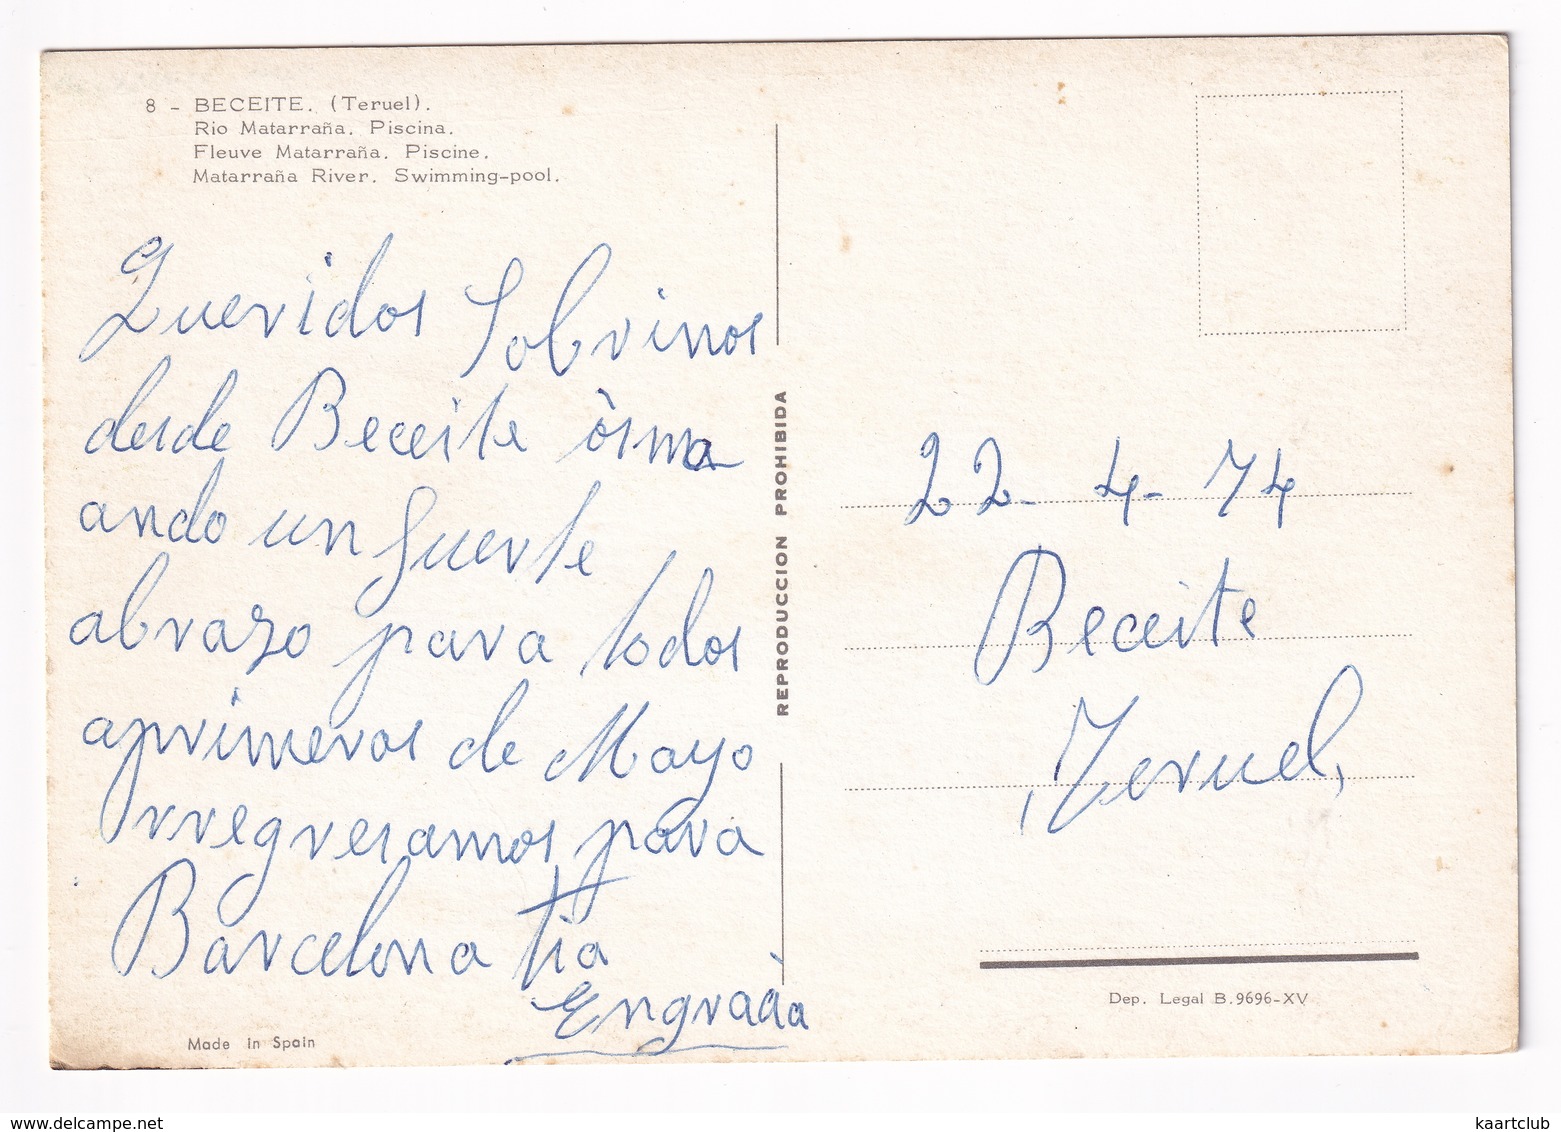 8 - BECEITE. (Teruel).
Rio Matarraña. Piscina.
Fleuve Matarraña. Piscine.
Matarraña River. Swimming-pool.
Queridos Sobrinos
desde Beceite òsma
ando un fuerte
abrazo para todos
aprimeros de Mayo
rregresamos para
Barcelona tia
Engraàa
Made in Spain
REPRODUCCION PROHIBIDA
22-4-74
Beceite
Teruel
Dep. Legal B.9696-XV
www.delcampe.net
kaartclub